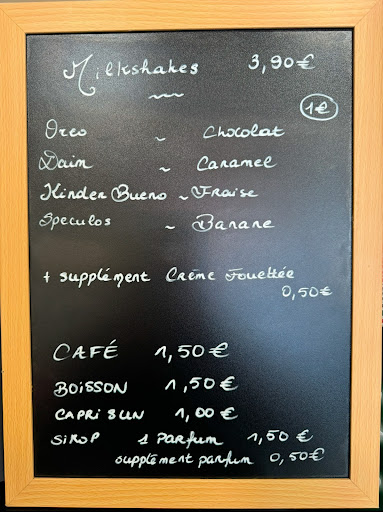 Milkshakes 3,90€
1€
Oreo ~ Chocolat
Daim ~ Caramel
Kinder Bueno ~ Fraise
Speculos ~ Banane
+ supplément Crème Fouettée
0,50€
CAFÉ 1,50€
BOISSON 1,50€
CAPRI SUN 1,00€
SIROP 1 Parfum 1,50€
supplément parfum 0,50€